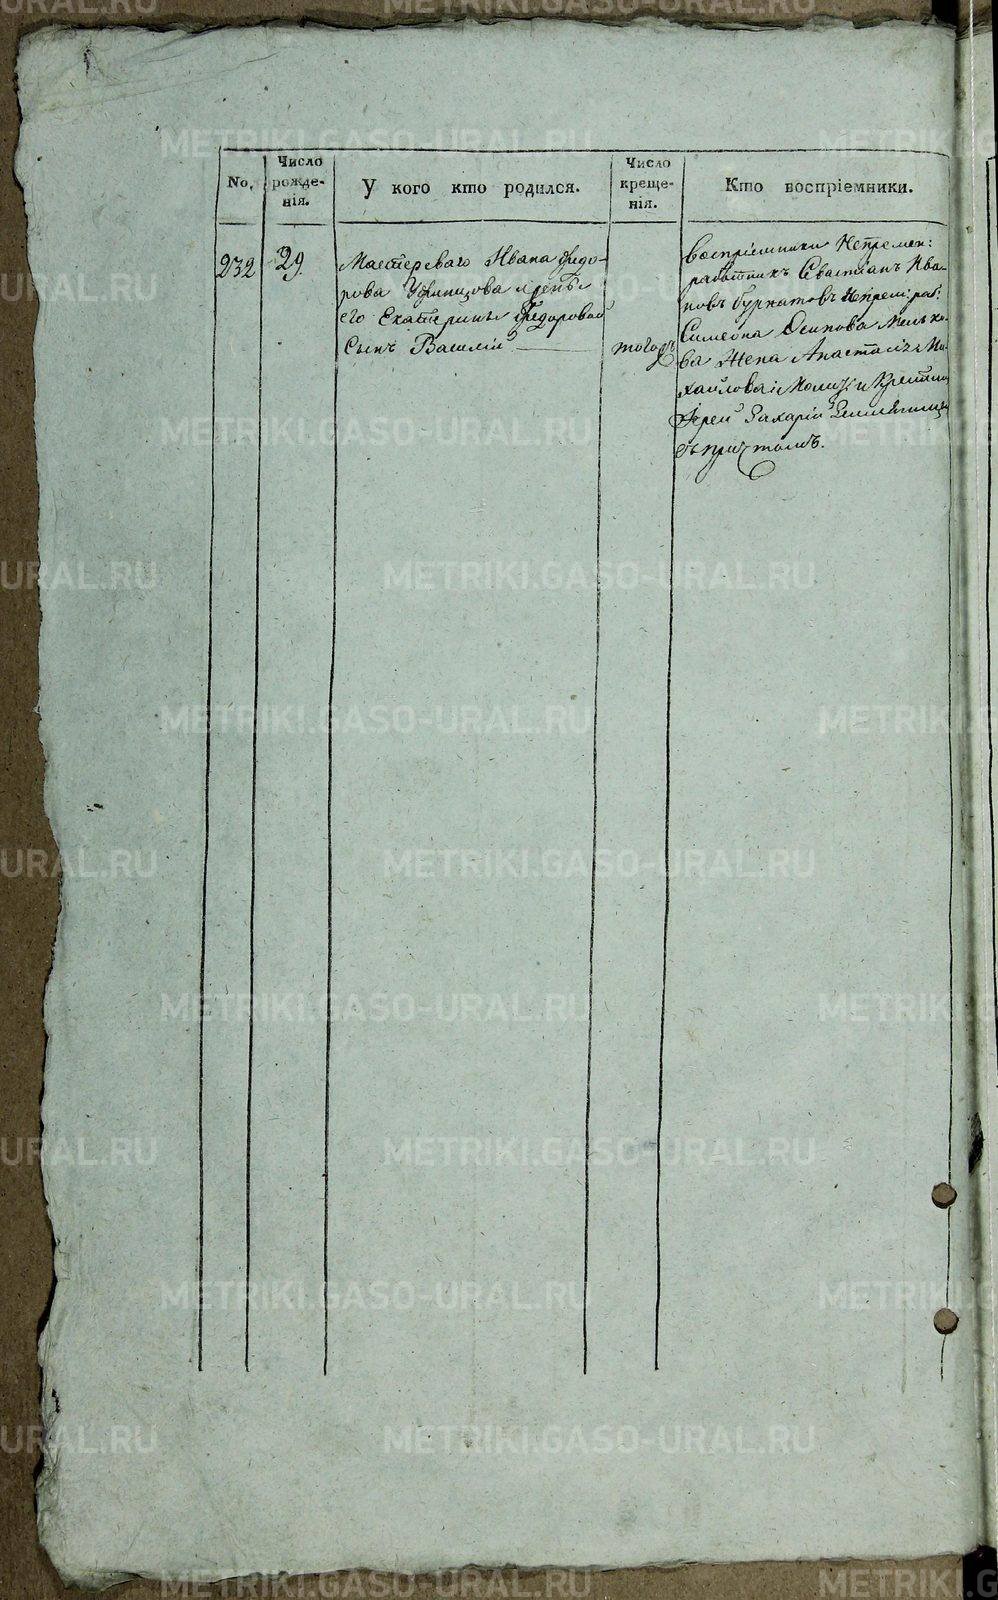 No.
Число рожде-нія.
У кого кто родился.
Число креще-нія.
Кто воспріемники.
232
29
Мастероваго Ивана Федо-
рова Уфинцова и жены
его Екатерины Федоровой
сынъ Василій
тогожъ
Воспріемники Непремен:
работникъ Севастіанъ Ива-
новъ Бурматовъ Непрем: раб:
Симеона Осипова Мелько-
ва Жена Анастасія Ми-
хайлова; Молит: и Крестил
Іерей Захарій
съ причтомъ.
METRIKI.GASO-URAL.RU